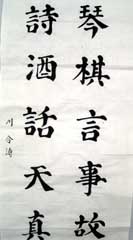 琴棋言事故
詩酒話天真